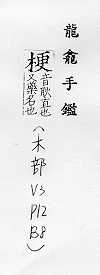 龍龕手鑑
梗音耿直也
又藥名也
(木部 VS P12 B8)